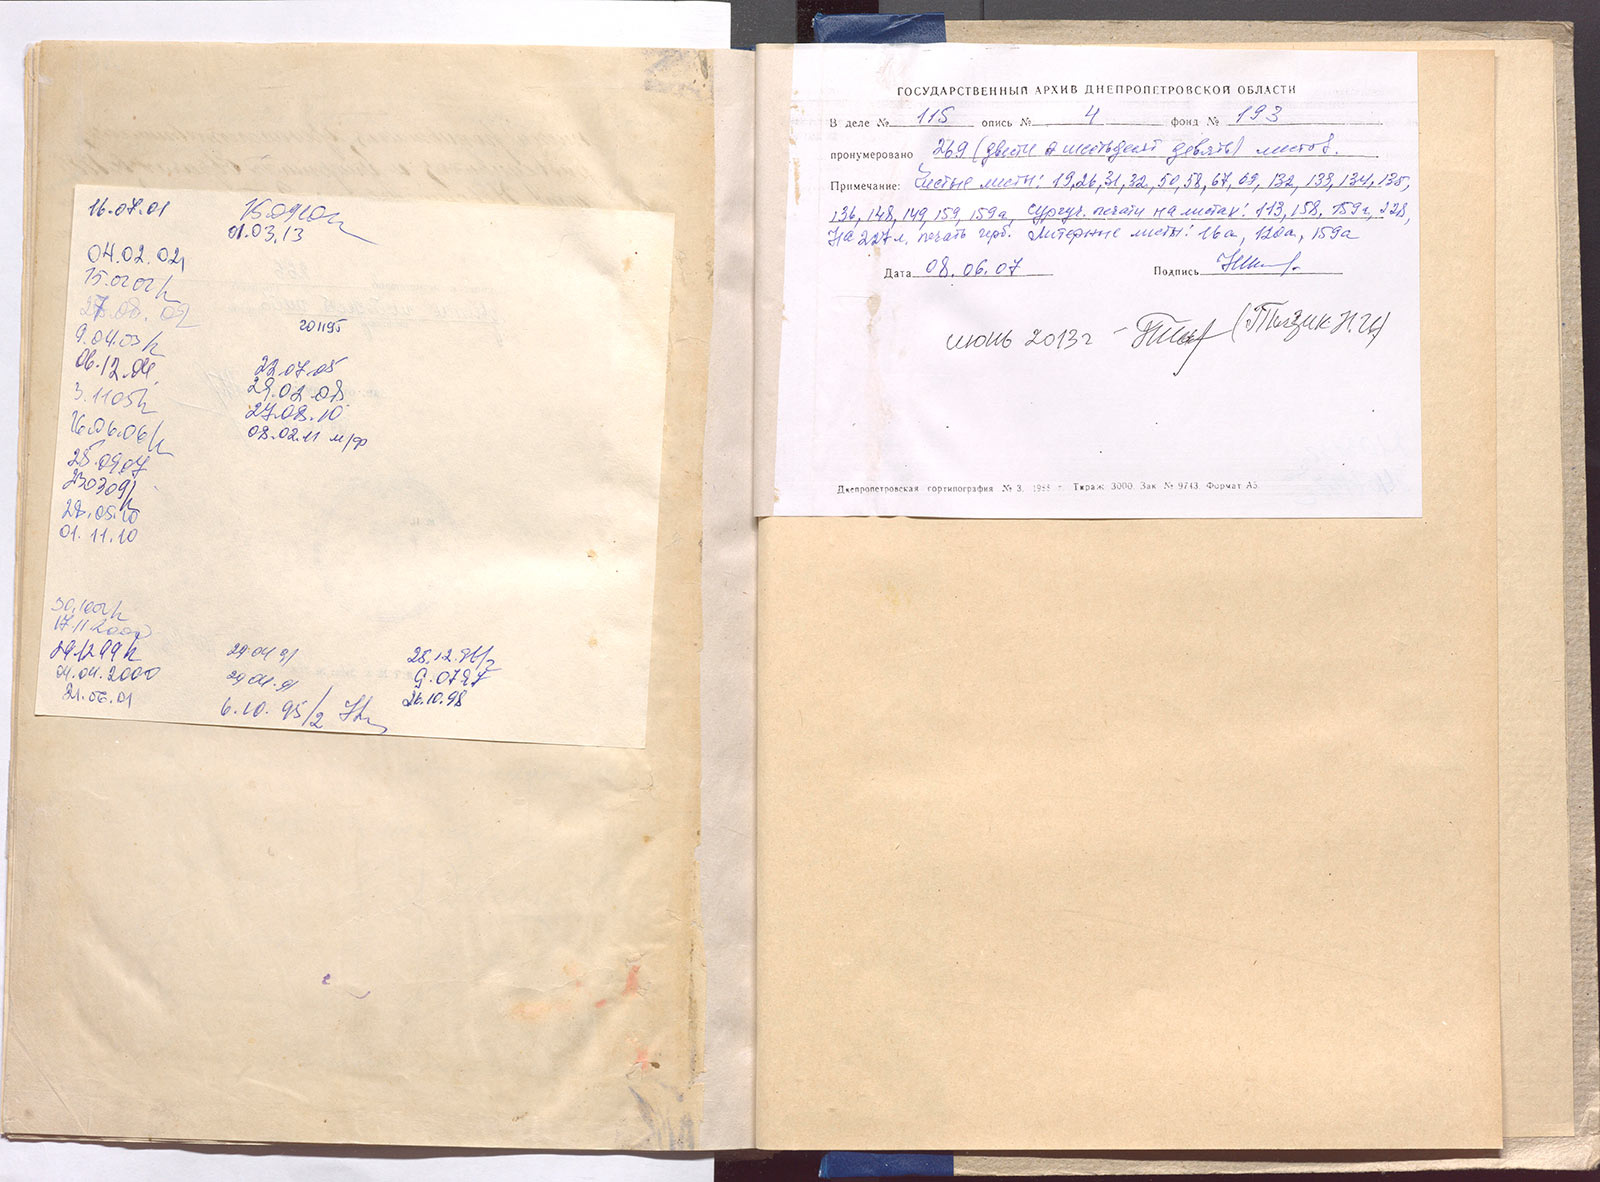 16.07.01
01.03.13
04.02.02
27.08.02
9.04.03
06.12.04
3.11 05
16.06.06
28.09.07
230309
28.05.10
01.11.10
201195
22.07.05
29.02.08
27.08.10
08.02.11 м/ф
17.11.2000
291299
04.04.2000
21.06.01
29.04 91
29.04.91
6.10.95/2
28.12.96/2
9.0797
26.10.98
ГОСУДАРСТВЕННЫЙ АРХИВ ДНЕПРОПЕТРОВСКОЙ ОБЛАСТИ
В деле № 115 опись № 4 фонд № 193
пронумеровано 269 (двести шестьдесят девять) листов.
Примечание: Чистые листы: 19,26,31,32,50,58,67,69,132,133,134,135,
136,148,149,159,159а, сургуч. печати на листах: 113,158,159г,228,
На 227л. печать герб. Литерные листы: 16а, 120а, 159а
Дата 08.06.07 Подпись
июнь 2013г - (Тызик Н.И)
Днепропетровская гортипография № 3. 1988 г. Тираж 3000. Зак № 9743. Формат А5.